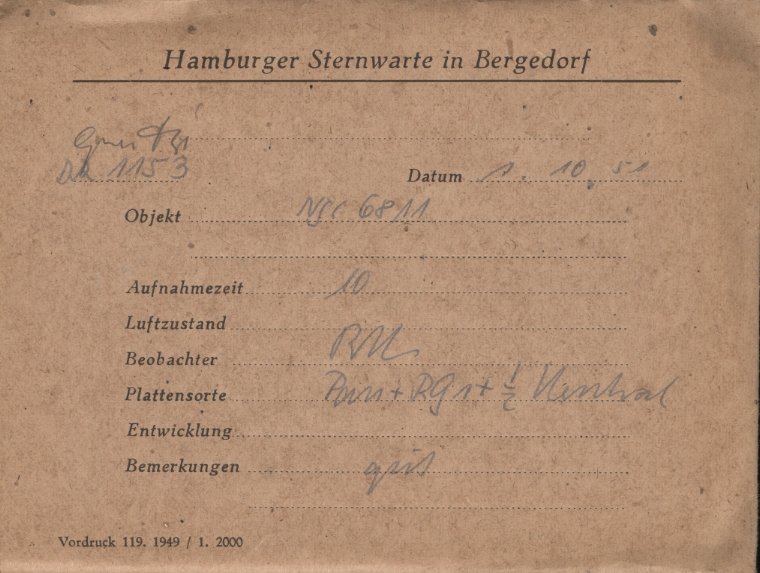 Hamburger Sternwarte in Bergedorf
1153
Datum 1. 10. 51
Objekt NGC 6811
Aufnahmezeit 10
Luftzustand
Beobachter
Plattensorte + RG 1 + 1/2
Entwicklung
Bemerkungen gut
Vordruck 119. 1949 / 1. 2000